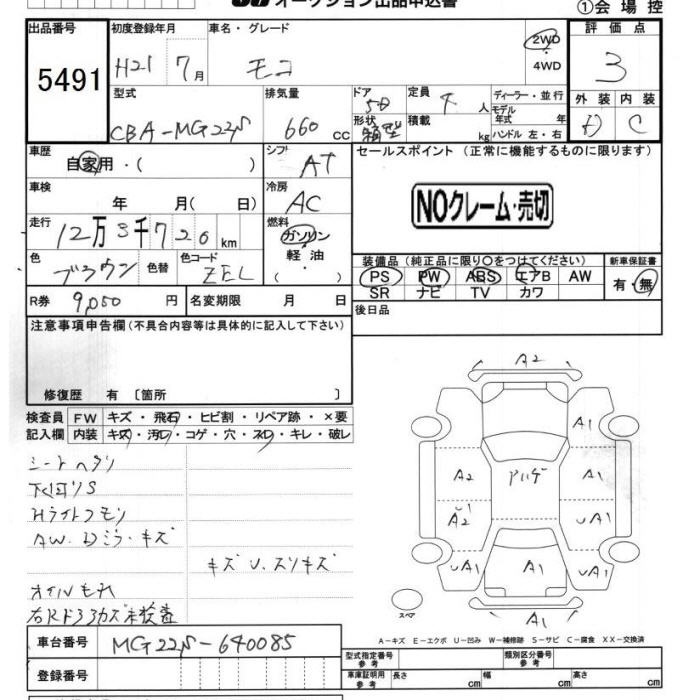 オークション出品申込書
①会場控
出品番号 初度登録年月 車名・グレード 評価点
5491 H21 7月 モコ 2WD・4WD 3
型式 排気量 ドア 定員 ディーラー・並行 外装 内装
CBA-MG22S 660cc 5D 4人 モデル年式 年 D C
形状 箱型 積載 kg ハンドル 左・右
車歴 シフト セールスポイント (正常に機能するものに限ります)
自家用・( ) AT
車検 冷房
年 月( 日) AC NOクレーム・売切
走行 燃料
12万3千720km ガソリン・軽油・( )
色 色コード 装備品 (純正品に限り○をつけてください) 新車保証書
ブラウン 色替 ZEL PS PW ABS エアB AW 有・無
SR ナビ TV カワ
R券 9,050円 名変期限 月 日 後日品
注意事項申告欄(不具合内容等は具体的に記入して下さい)
修復歴 有 〔箇所 〕
検査員 FW キズ・飛石・ヒビ割・リペア跡・×要
記入欄 内装 キズ・汚レ・コゲ・穴・スレ・キレ・破レ
シートヘタリ
下回リS
Hライトクモリ
AW.Dミラ-キズ
キズ U.スリキズ
オイルモレ
A2
A1
A2 アハゲ A1
A2 UA1
UA1 A1 UA1
スペア A1
A-キズ E-エクボ U-凹み W-補修跡 S-サビ C-腐食 XX-交換済
車台番号 MG22S-640085
型式指定番号 参考 類別区分番号 参考
登録番号 車庫証明用 参考 長さ cm 幅 cm 高さ cm